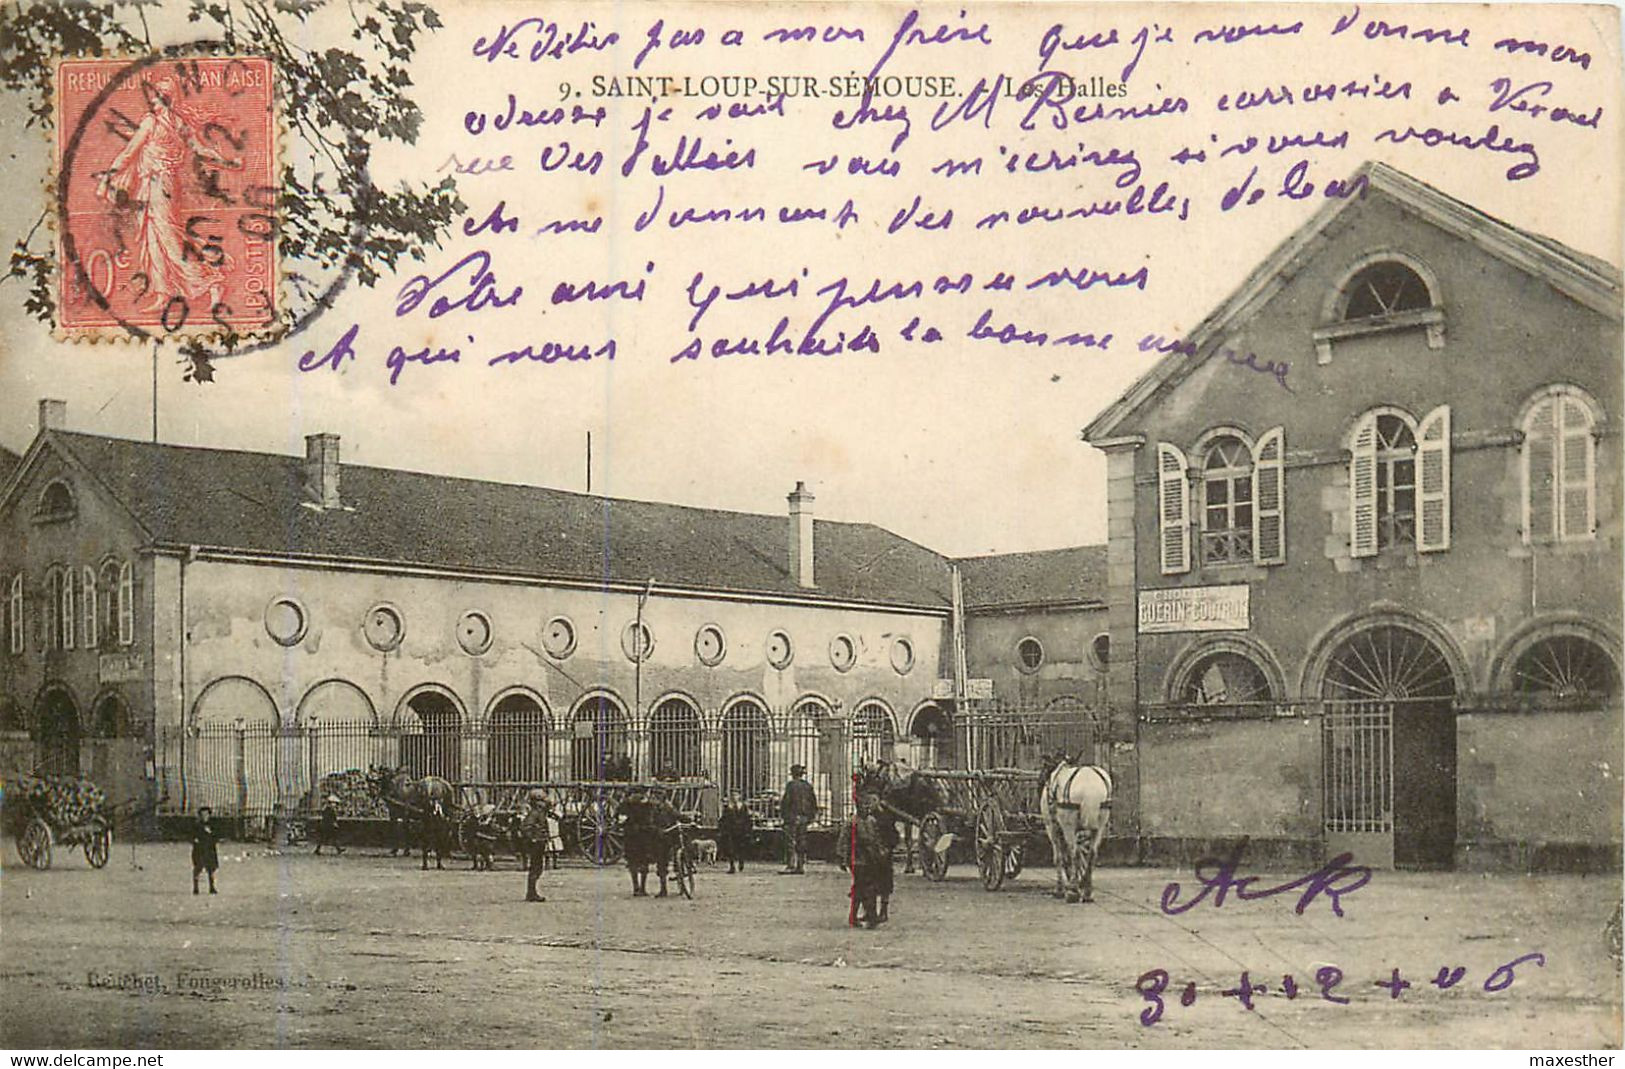 Ne dites pas a mon frère que je vous donne mon
adresse je suit chez M Bernier carrossier a Vesoul
rue des Vallées vous m'écrirez si vous voulez
et me donnant des nouvelles de
Votre ami qui pense a vous
et qui vous souhaite la bonne année
9. SAINT-LOUP-SUR-SÉMOUSE. - Les Halles
REPUBLIQUE FRANÇAISE
10c
POSTES
30 12 06
GUERIN-COUTHON
AR
30 + 12 + 06
Reuchet, Fougerolles
www.delcampe.net
maxesther